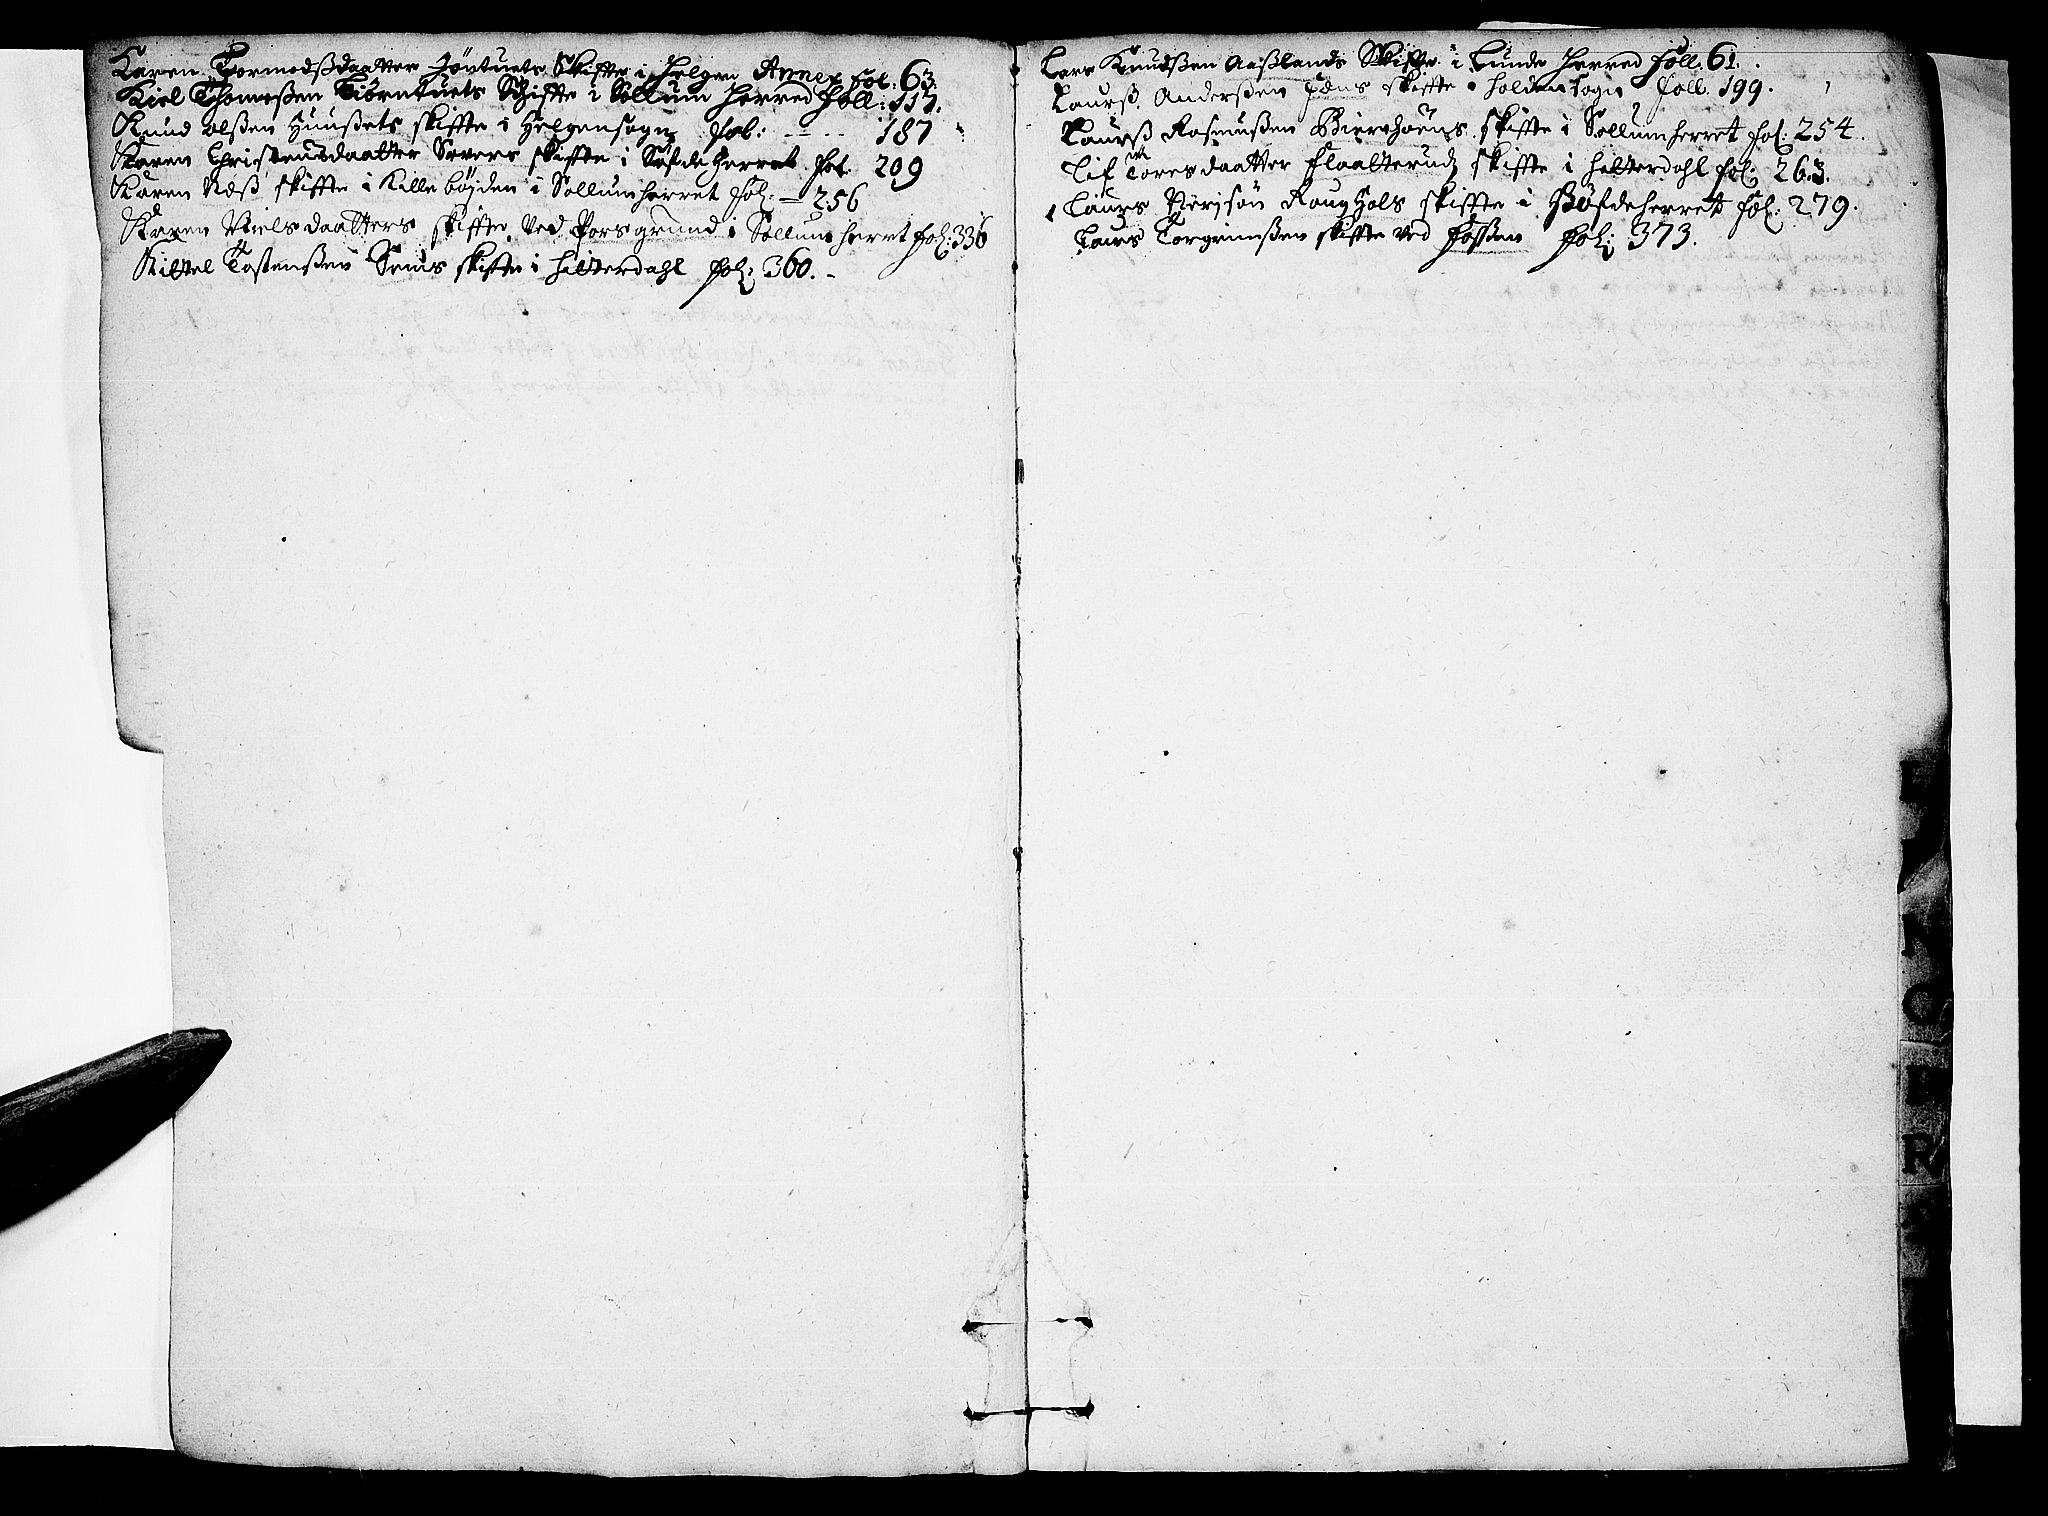 Karen Tormodsdaatter Jøntuets Skiffte i Helgen Annex fol: 63
Kiel Thomesßen Biørntuets Schiffte i Sollum Herred Foll: 117.
Knud olsßen Huusßets skiffte i Helgensogn fol: 187
Karen Christensdaatter Severs skiffte i Bøfde Herret fol: 209
Karen Næsß skiffte i Killebøjden i Sollumherret fol: 256
Karen Nielsdaatters skiffte ved Porsgrund i Sollumherret fol: 336
Kittel Tostensßen Sems skiffte i Hitterdahl fol: 360.
Lars Knudsßen Aasßlands Skiffte i Lunde Herred foll. 61.
Laursß Andersßen skiffte i Holden Sogn foll. 199.
Laursß Rasmusßen Bierchøens skiffte i Sollumherret fol: 254.
Lif Toresdaatter flaatterud skiffte i Hitterdahl fol: 263.
Laurs skiffte i Bøfdeherret fol: 279.
Laurs Torgrimsßen skiffte ved Fosßen fol: 373.